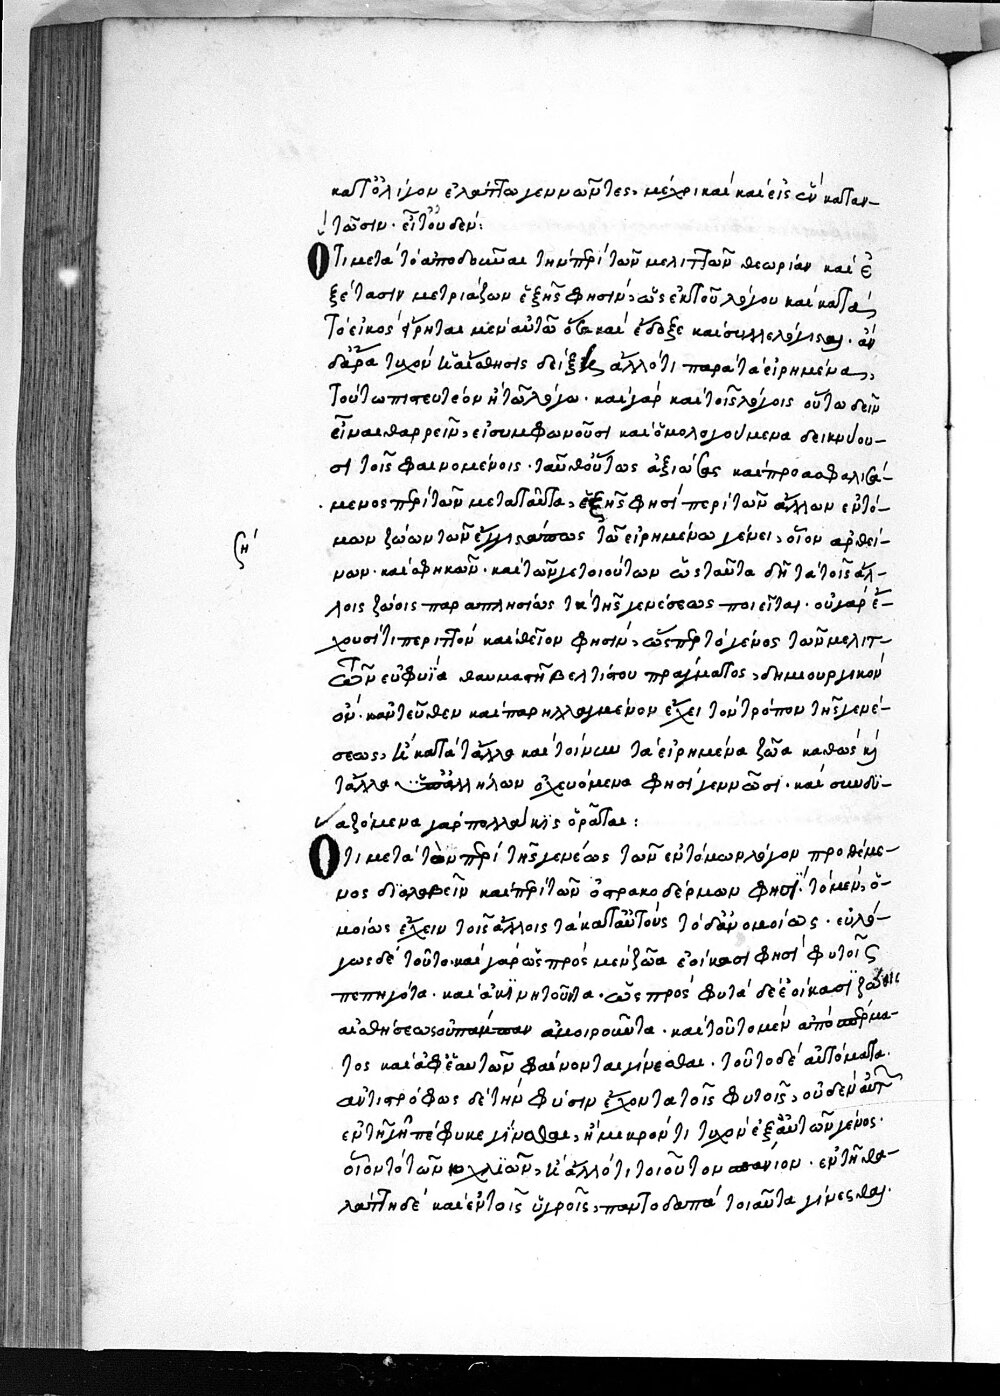 κατ' ὀλίγον ἐλάττω γεννῶντες, μέχρι καὶ εἰς ὃν καταν-
τῶσιν. εἰ τὸ οὐδέν:
Ὅτι μετὰ τὸ ἀποδοῦναι τὴν περὶ τῶν μελιττῶν θεωρίαν καὶ ἐ-
ξέτασιν μετριάζων ἑξῆς φησίν, ὡς ἐκ τοῦ λόγου καὶ κατὰ
τὸ εἰκὸς εἴρηται μὲν αὐτῷ ὅσα καὶ ἔδοξε καὶ συλλελόγισται. ἂν
δ' ἄρα τυχὸν καὶ αἴσθησις δείξῃ ἄλλό τι παρὰ τὰ εἰρημένα,
τούτῳ πιστευτέον ἢ τῷ λόγῳ. καὶ γὰρ καὶ τοῖς λόγοις οὕτω δεῖν
εἶναι θαρρεῖν, εἰ συμφωνοῦσι καὶ ὁμολογούμενα δεικνύου-
σι τοῖς φαινομένοις. ταῦθ' οὕτως ἀξιώσας καὶ προασφαλισά-
μενος περὶ τῶν μετὰ ταῦτα, ἑξῆς φησὶ περὶ τῶν ἄλλων ἐντό-
μων ζώων τῶν τῷ εἰρημένῳ γένει, οἷον ἀνθρη-
νῶν. καὶ σφηκῶν. καὶ τῶν γε τοιούτων ὡς ταῦτα δὴ τὰ τοῖς ἄλ-
λοις ζώοις παραπλησίως τὰ τῆς γενέσεως ποιεῖται. οὐ γὰρ ἔ-
χουσί τι περιττὸν καὶ θεῖον φησίν, ὥσπερ τὸ γένος τῶν μελιτ-
τῶν εὐφυΐα θαυμαστῇ βελτίστου πράγματος, δημιουργικὸν
ὄν. κἀντεῦθεν καὶ παρηλλαγμένον ἔχει τὸν τρόπον τῆς γενέ-
σεως, καὶ κατὰ τἄλλα καὶ τοίνυν τὰ εἰρημένα ζῶα καθὼς καὶ
τἄλλα ἀλλήλων ὀχευόμενα φησὶ γεννῶσι. καὶ συνδυ-
αζόμενα γὰρ πολλάκις ὁρᾶται:
Ὅτι μετὰ τὸν περὶ τῆς γενέσεως τῶν ἐντόμων λόγον προθέμε-
νος διαλαβεῖν καὶ περὶ τῶν ὀστρακοδέρμων φησὶ. τὸ μὲν, ὁ-
μοίως ἔχειν τοῖς ἄλλοις τὰ κατ' αὐτοὺς τὸ δ' ἀνομοίως. εὐλό-
γως δὲ τοῦτο. καὶ γὰρ ὡς πρὸς μὲν ζῶα ἐοίκασι φησὶ φυτοῖς
πεπηγότα. καὶ ἀκινητοῦντα. ὡς πρὸς φυτὰ δὲ ἐοίκασι ζώοις
αἰσθήσεως οὐ πάμπαν ἀμοιροῦντα. καὶ τοῦτο μὲν ἀπὸ σπέρμα-
τος καὶ ἀφ' ἑαυτῶν φαίνονται γίνεσθαι. τοῦτο δὲ αὐτόματα.
ἀντιστρόφως δὲ τὴν φύσιν ἔχοντα τοῖς φυτοῖς, οὐδὲν αὐτῶν
ἐν τῇ γῇ πέφυκε γίνεσθαι, ἢ μικρόν τι τυχὸν ἐξ αὐτῶν γένος.
οἷον τὸ τῶν κοχλιῶν, καὶ ἄλλό τι τοιοῦτον σπάνιον. ἐν τῇ θα-
λάττῃ δὲ καὶ ἐν τοῖς ὑγροῖς, παντοδαπὰ τοιαῦτα γίνεσθαι.
ζή